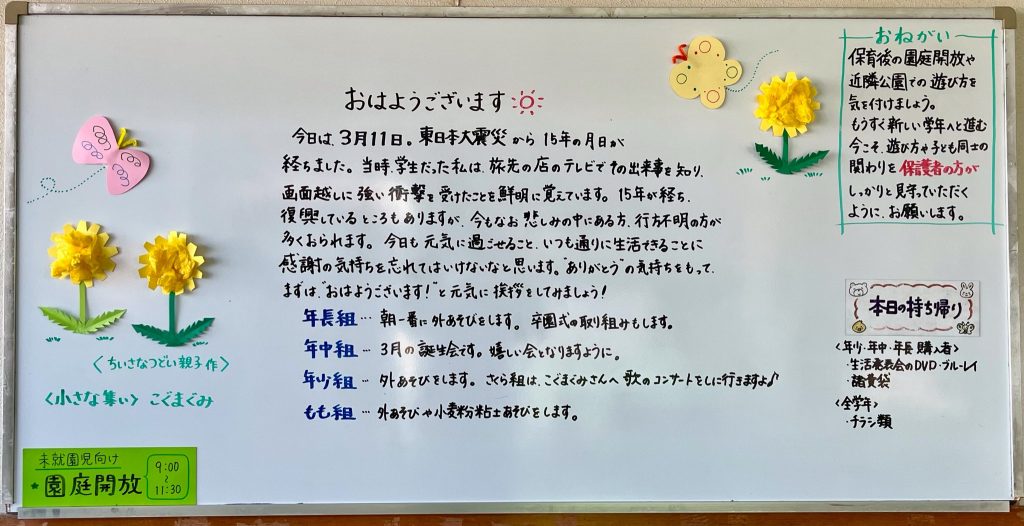 おはようございます
今日は、3月11日。東日本大震災から15年の月日が
経ちました。当時、学生だった私は、旅先の店のテレビでその出来事を知り、
画面越しに強い衝撃を受けたことを鮮明に覚えています。15年が経ち、
復興しているところもありますが、今もなお悲しみの中にある方、行方不明の方が
多くおられます。今日も元気に過ごせること、いつも通りに生活できることに
感謝の気持ちを忘れてはいけないなと思います。"ありがとう"の気持ちをもって、
まずは、"おはようございます!"と元気に挨拶をしてみましょう!
年長組…朝一番に外あそびをします。卒園式の取り組みもします。
年中組…3月の誕生会です。嬉しい会となりますように。
年少組…外あそびをします。さくら組は、こぐまぐみさんへ歌のコンサートをしに行きますよ♪
もも組…外あそびや小麦粉粘土あそびをします。
〈ちいさなつどい親子作〉
〈小さな集い〉こぐまぐみ
未就園児向け
★園庭開放
9:00
~
11:30
おねがい
保育後の園庭開放や
近隣公園での遊び方を
気を付けましょう。
もうすぐ新しい学年へと進む
今こそ、遊び方や子ども同士の
関わりを保護者の方が
しっかりと見守っていただく
ように、お願いします。
本日の持ち帰り
〈年少・年中・年長 購入者〉
・生活発表会のDVD・ブルーレイ
・諸費袋
〈全学年〉
・チラシ類